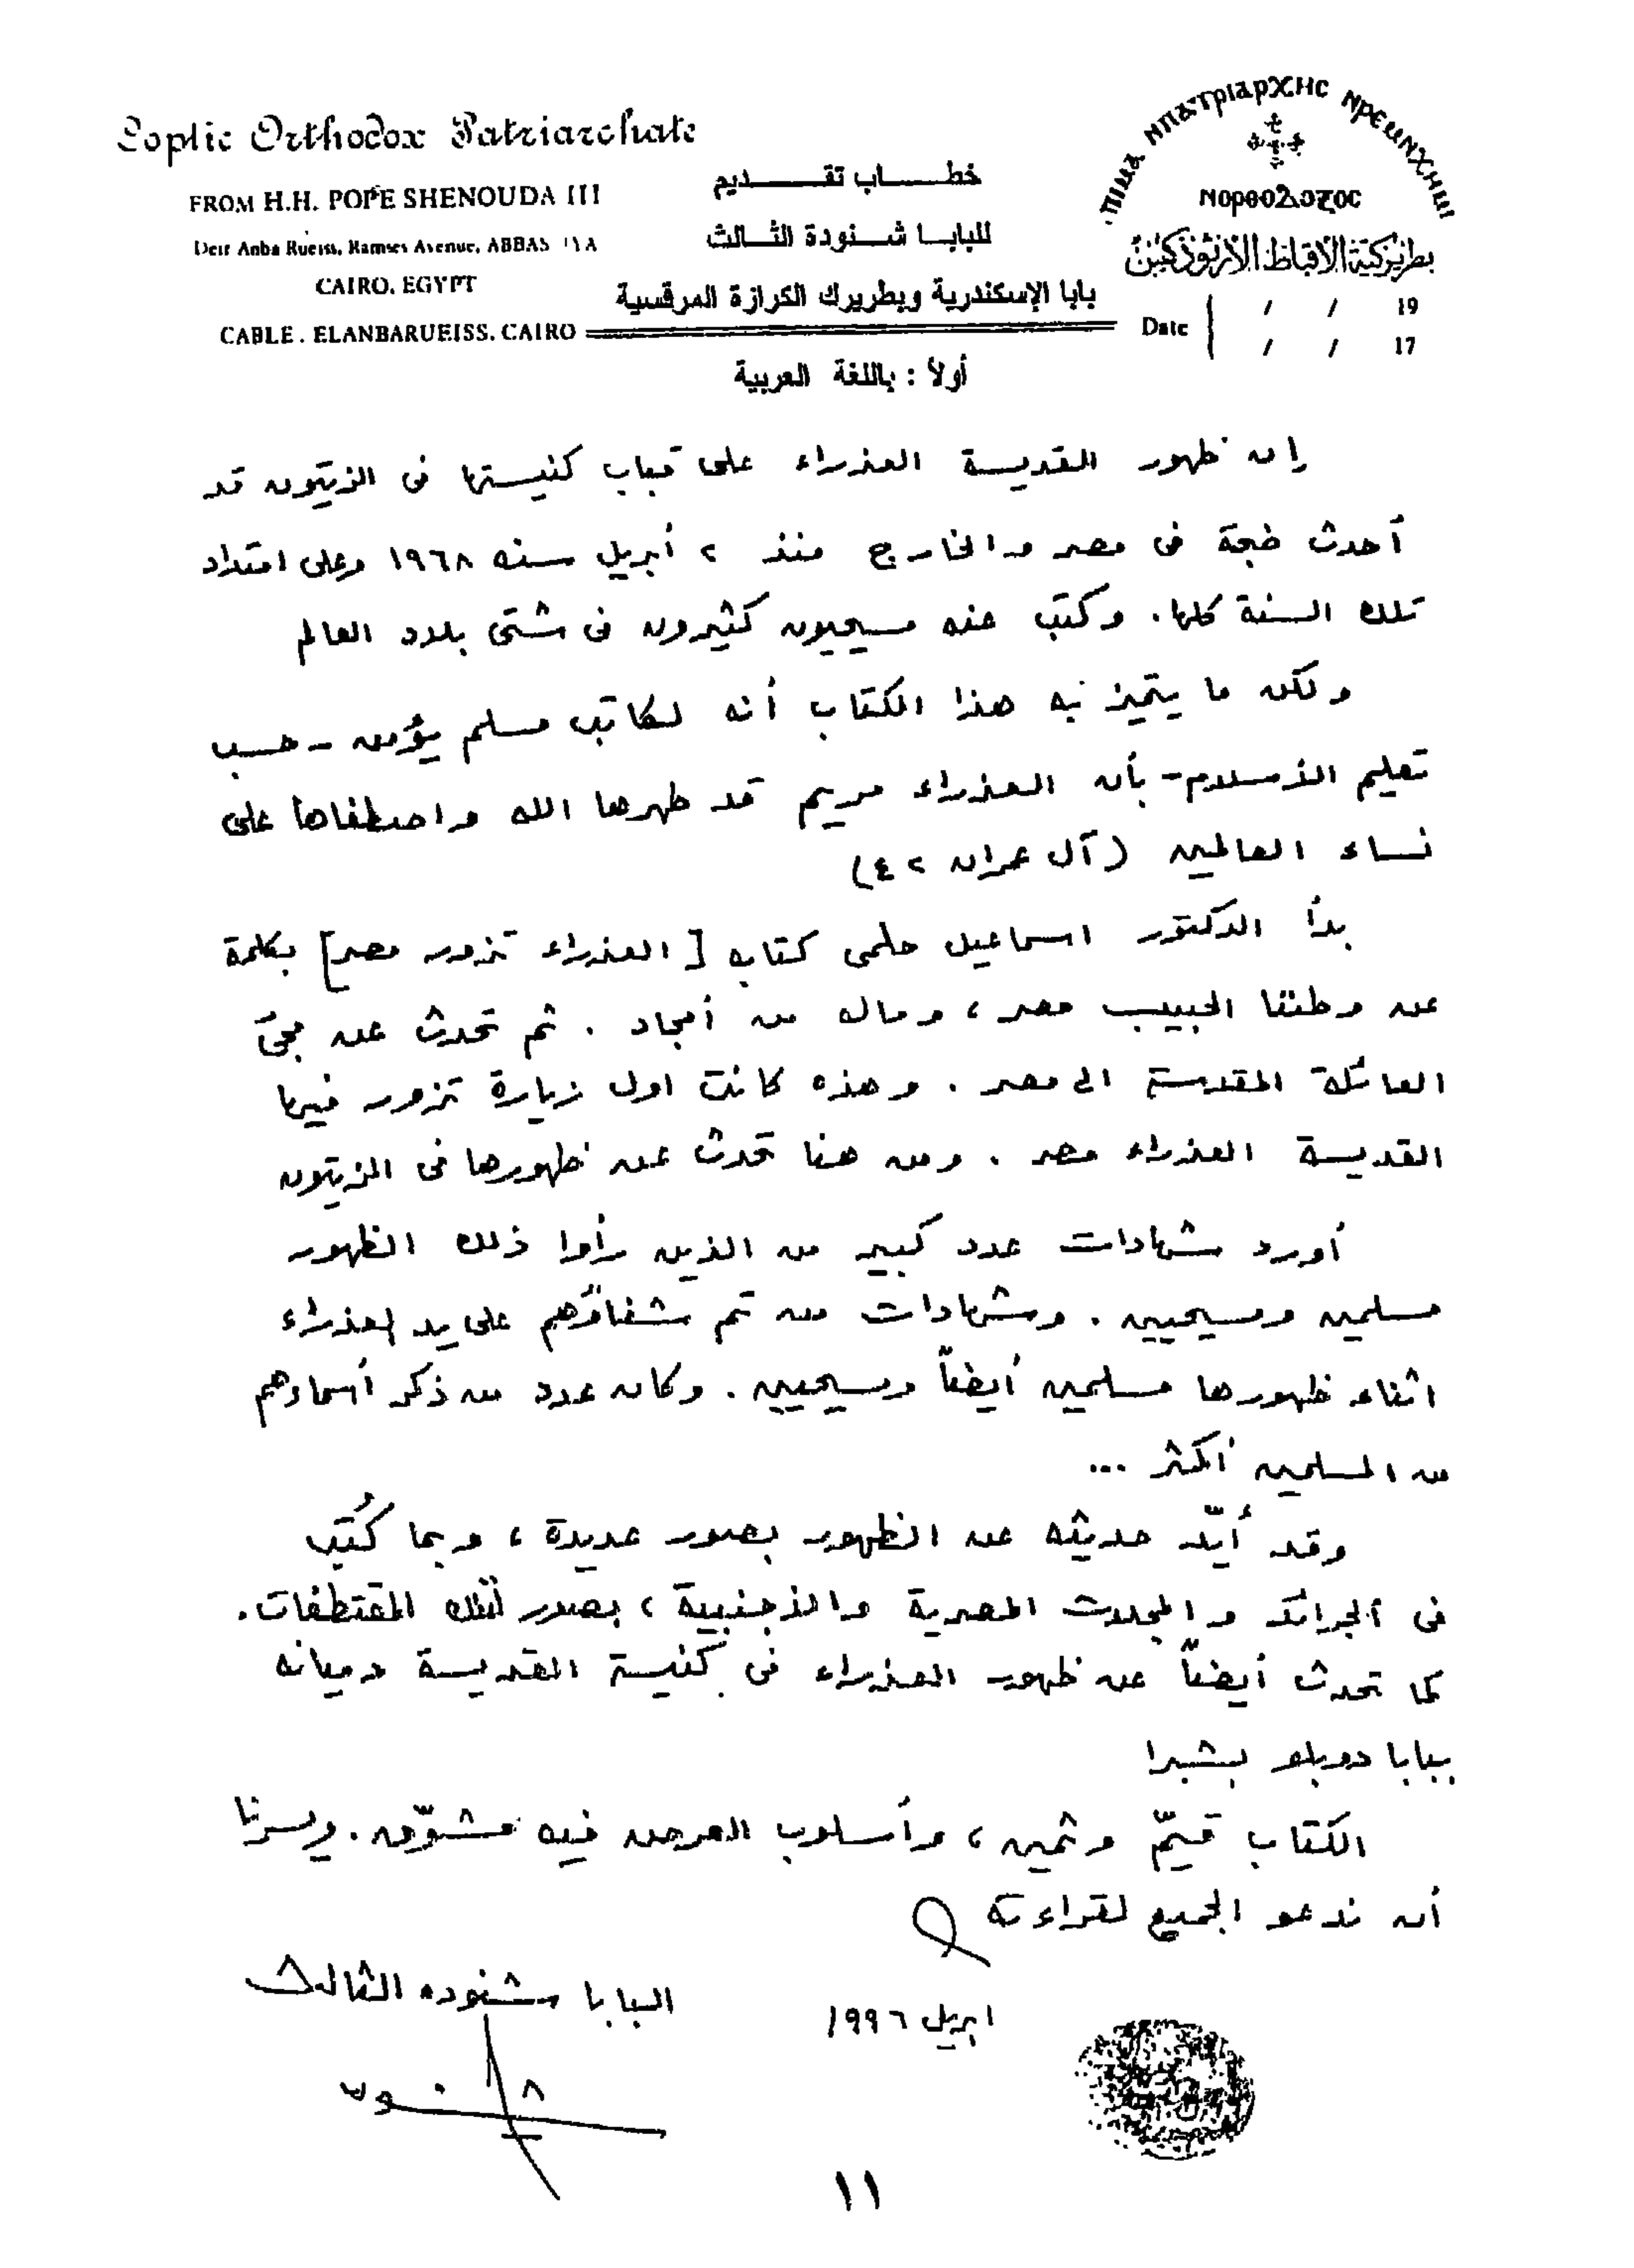 Coptic Orthodox Patriarchate
FROM H.H. POPE SHENOUDA III
Deir Anba Rueiss, Ramses Avenue, ABBAS
CAIRO, EGYPT
CABLE . ELANBARUEISS, CAIRO
خطاب تقديم
للبابا شنودة الثالث
بابا الإسكندرية وبطريرك الكرازة المرقسية
بطريركية الأقباط الأرثوذكس
Date / / 19
/ / 17
أولاً : باللغة العربية
إن ظهور القديسة العذراء على قباب كنيستها فى الزيتون قد
أحدث ضجة فى مصر والخارج منذ ٢ أبريل سنه ١٩٦٨ وعلى امتداد
تلك السنة كلها. وكتب عنه مسيحيون كثيرون فى شتى بلاد العالم
ولكن ما يتميز به هذا الكتاب أنه لكاتب مسلم يؤمن - حسب
تعليم الإسلام - بأن العذراء مريم قد طهرها الله واصطفاها على
نساء العالمين (آل عمران ٤٢)
بدأ الدكتور اسماعيل حلمى كتابه [العذراء تزور مصر] بكلمة
عن وطننا الحبيب مصر، وماله من أمجاد . ثم تحدث عن مجئ
العائلة المقدسة الى مصر . وهذه كانت اول زيارة تزور فيها
القديسة العذراء مصر . ومن هنا تحدث عن ظهورها فى الزيتون
أورد شهادات عدد كبير من الذين رأوا ذلك الظهور
مسلمين ومسيحيين . وشهادات من تم شفاؤهم على يد العذراء
اثناء ظهورها مسلمين أيضاً ومسيحيين . وكان عدد من ذكر أسماءهم
من المسلمين أكثر ...
وقد أيّد حديثه عن الظهور بصور عديدة ، وبما كُتب
فى الجرائد والمجلات المصرية والأجنبية ، بصور لتلك المقتطفات .
كما تحدث أيضاً عن ظهور العذراء فى كنيسة القديسة دميانه
ببابا دوبلو بشبرا
الكتاب قيّم وثمين ، وأسلوب العرض فيه مشوّق . ويسرنا
أن ندعو الجميع لقراءته
البابا شنوده الثالث
ابريل ١٩٩٦
١١